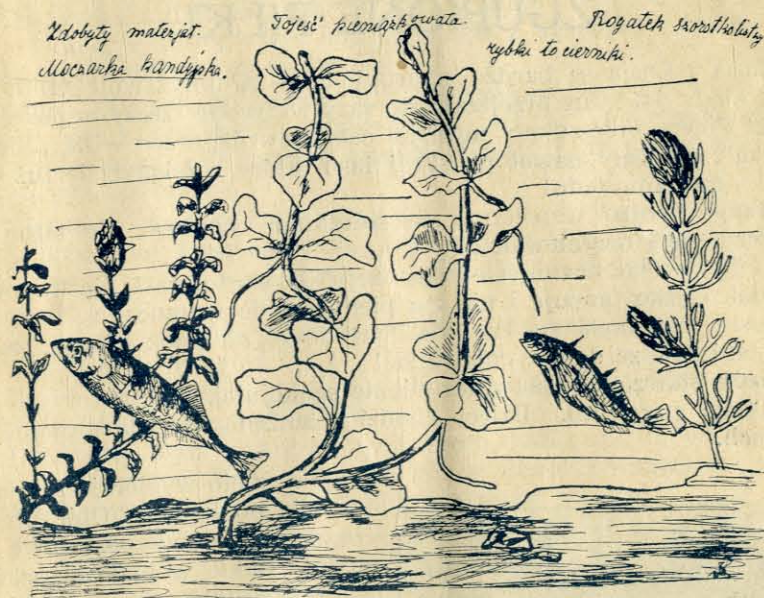 Zdobyty materjał.
Moczarka kandyjska.
Tojeść pieniążkowata.
Rogatek szorstkolistny
rybki to cierniki.